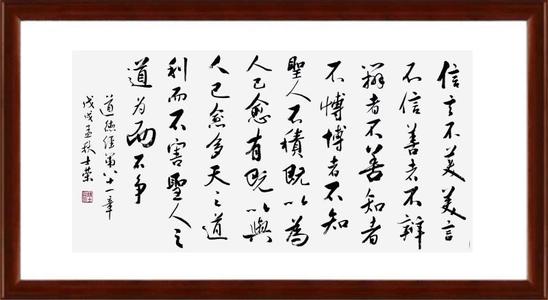 信言不美美言
不信善者不辯
辯者不善知者
不博博者不知
聖人不積既以為
人己愈有既以與
人己愈多天之道
利而不害聖人之
道為而不争
道德经第八十一章
戊戌孟秋士荣